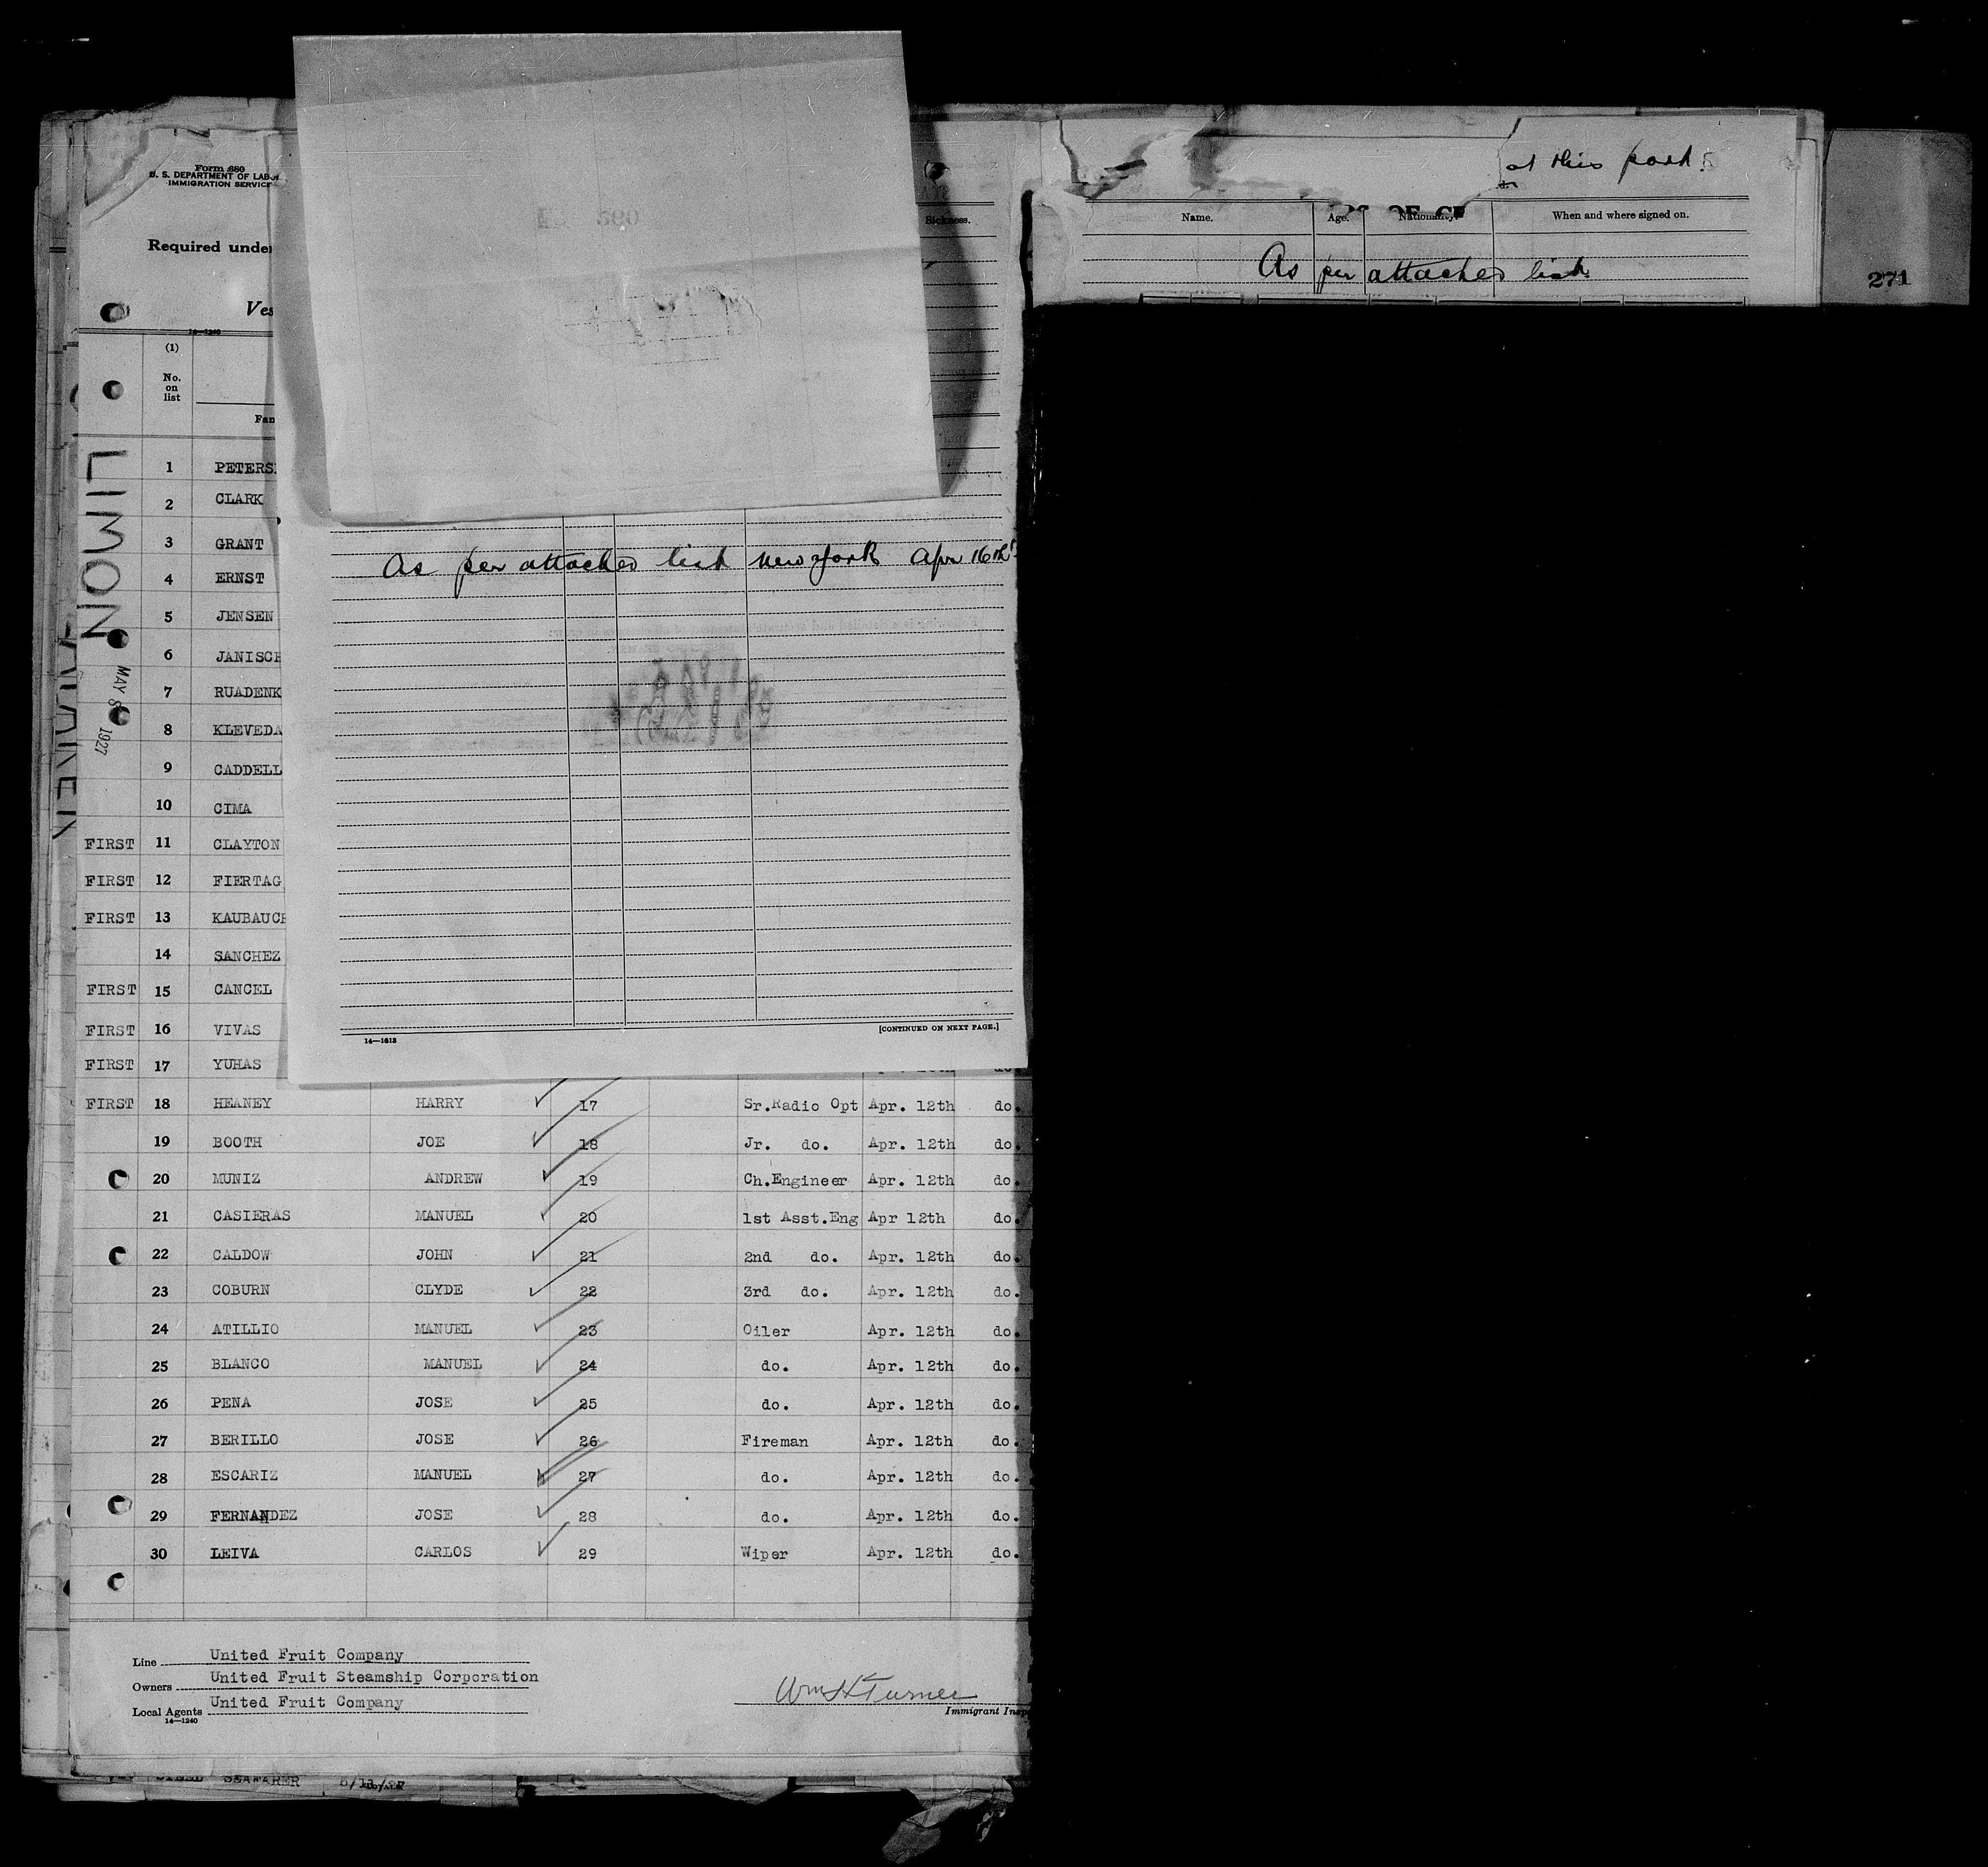 at this port.
Name. Age. Nationality. When and where signed on.
As per attached list
271
Form 680
U. S. DEPARTMENT OF LABO
IMMIGRATION SERVICE
Sickness.
Required unde
Ves
14—1240
(1)
No.
on
list
Fam
LIMON
MAY 8 1927
As per attached list New York Apr 16th
[CONTINUED ON NEXT PAGE.]
14—1613
1 PETERS
2 CLARK
3 GRANT
4 ERNST
5 JENSEN
6 JANISCH
7 RUADENK
8 KLEVEDA
9 CADDELL
10 CIMA
FIRST 11 CLAYTON
FIRST 12 FIERTAG
FIRST 13 KAUBAUCH
14 SANCHEZ
FIRST 15 CANCEL
FIRST 16 VIVAS
FIRST 17 YUHAS
FIRST 18 HEANEY HARRY 17 Sr.Radio Opt Apr. 12th do.
19 BOOTH JOE 18 Jr. do. Apr. 12th do.
20 MUNIZ ANDREW 19 Ch.Engineer Apr. 12th do.
21 CASIERAS MANUEL 20 1st Asst.Eng Apr 12th do.
22 CALDOW JOHN 21 2nd do. Apr. 12th do.
23 COBURN CLYDE 22 3rd do. Apr. 12th do.
24 ATILLIO MANUEL 23 Oiler Apr. 12th do.
25 BLANCO MANUEL 24 do. Apr. 12th do.
26 PENA JOSE 25 do. Apr. 12th do.
27 BERILLO JOSE 26 Fireman Apr. 12th do.
28 ESCARIZ MANUEL 27 do. Apr. 12th do.
29 FERNANDEZ JOSE 28 do. Apr. 12th do.
30 LEIVA CARLOS 29 Wiper Apr. 12th do.
Line United Fruit Company
Owners United Fruit Steamship Corporation
Local Agents United Fruit Company
14—1240
Wm H Turner
Immigrant Insp
SEAFARER